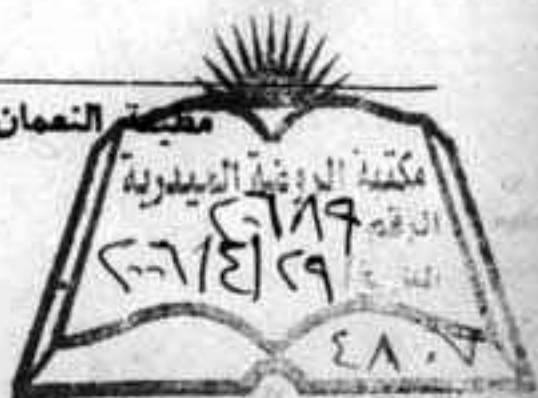 مطبعة النعمان
مكتبة الروضة الحيدرية
الرقم ٢٠٦٨٩
٢٠٠٦/٤/٢٩